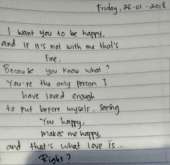 Friday, 26-01-2018
I want you to be happy,
and if it's not with me that's
fine.
Because you know what?
You're the only person I
have loved enough
to put before myself. Seeing
you happy,
makes me happy,
and that's what love is..
Right?